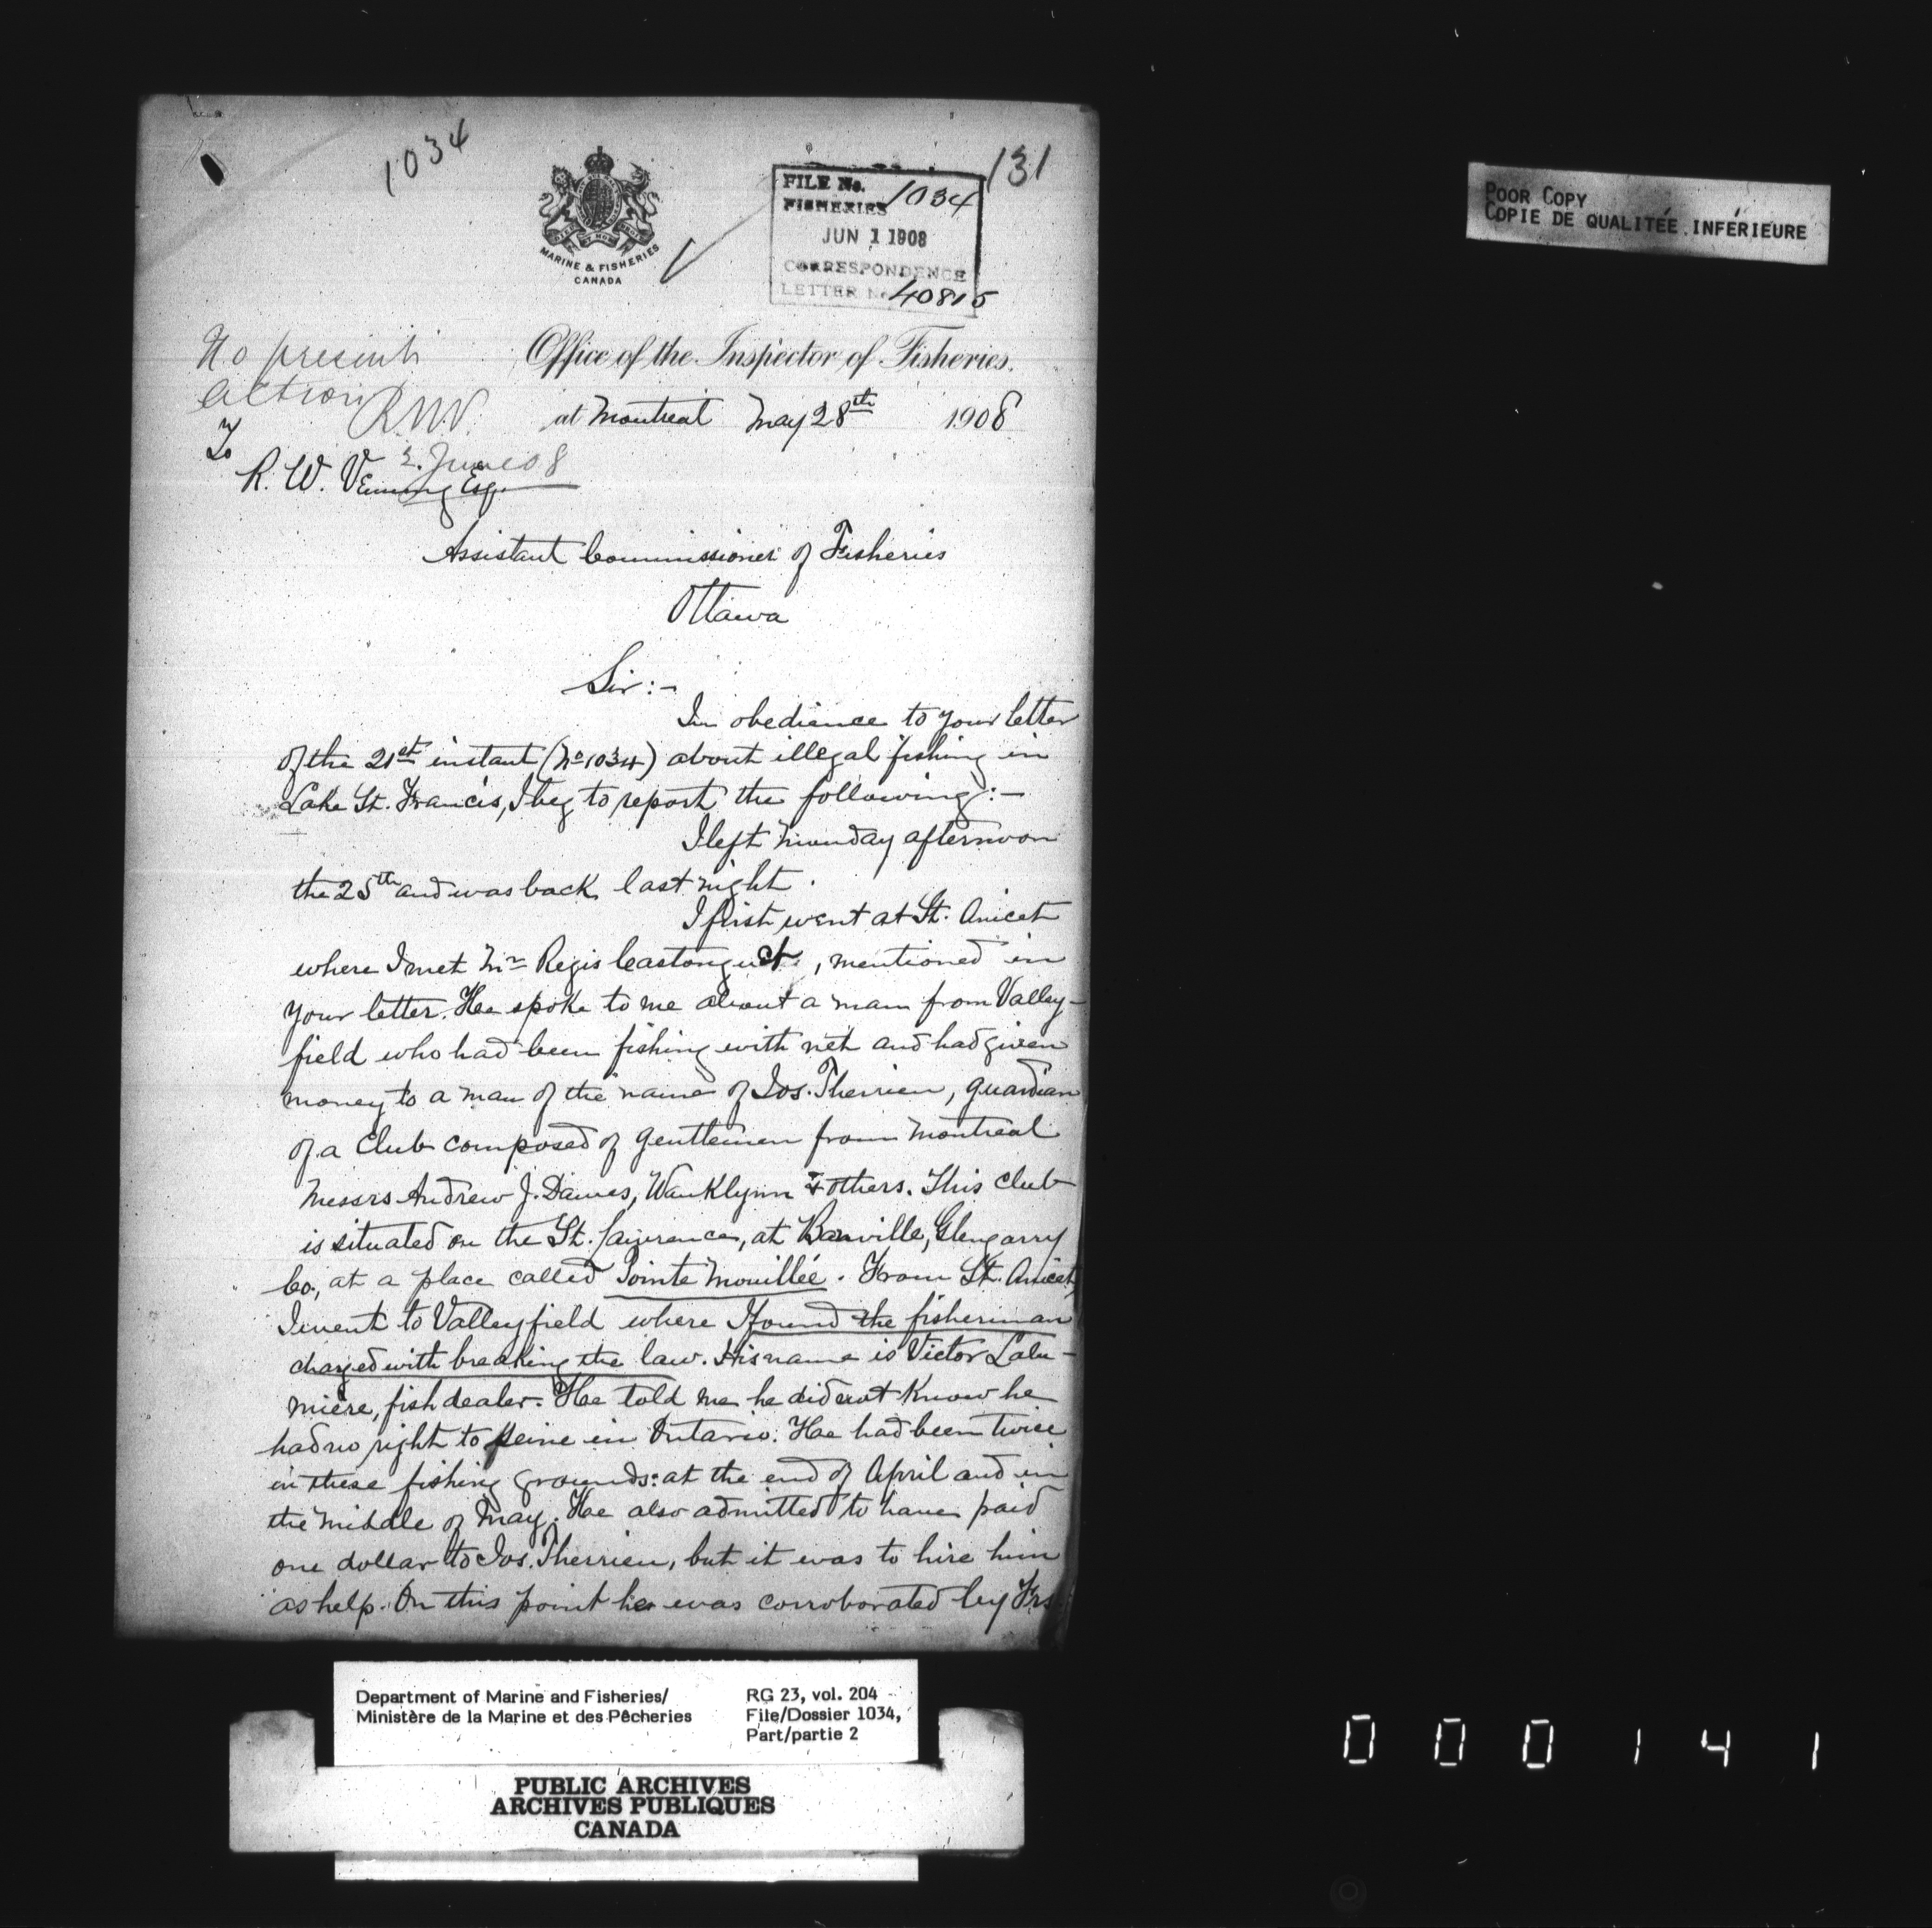 1034
131
FILE No. 1034
FISHERIES
JUN 1 1908
CORRESPONDENCE
LETTER No. 40815
MARINE & FISHERIES
CANADA
POOR COPY
COPIE DE QUALITÉE INFÉRIEURE
No present
action
R.W.V.
2. June 08
Office of the Inspector of Fisheries.
at Montreal May 28th 1908
To
R. W. Venning Esq.
Assistant Commissioner of Fisheries
Ottawa
Sir:-
In obedience to your letter
of the 21st instant (No 1034) about illegal fishing in
Lake St. Francis, I beg to report the following:-
I left Monday afternoon
the 25th and was back last night.
I first went at St. Anicet
where I met Mr Regis Castonguet, mentioned in
your letter. He spoke to me about a man from Valley-
field who had been fishing with net and had given
money to a man of the name of Jos. Therrien, guardian
of a Club composed of gentlemen from Montreal
Messrs Andrew J. Dawes, Wanklynn & others. This club
is situated on the St. Lawrence, at Bainville, Glengarry
Co., at a place called Pointe Mouillée. From St. Anicet,
I went to Valleyfield where I found the fisherman
charged with breaking the law. His name is Victor Lalu-
mière, fish dealer. He told me he did not know he
had no right to seine in Ontario. He had been twice
in these fishing grounds: at the end of April and in
the middle of May. He also admitted to have paid
one dollar to Jos. Therrien, but it was to hire him
as help. On this point he was corroborated by Frs
Department of Marine and Fisheries/
Ministère de la Marine et des Pêcheries
RG 23, vol. 204
File/Dossier 1034,
Part/partie 2
PUBLIC ARCHIVES
ARCHIVES PUBLIQUES
CANADA
000141